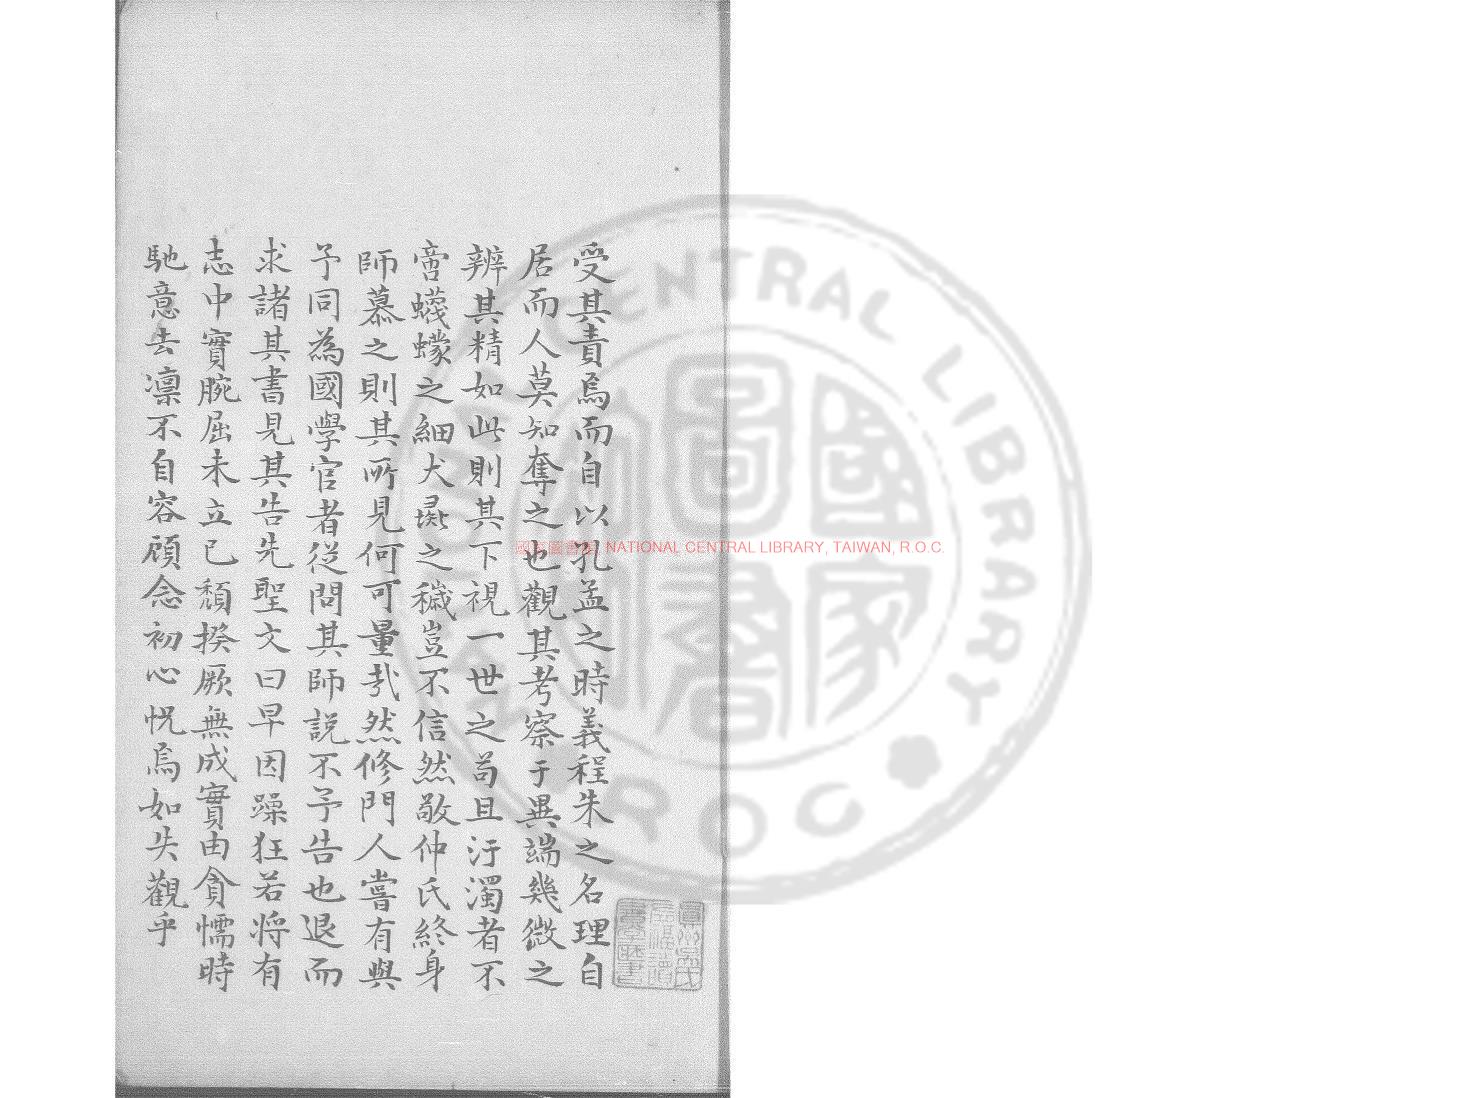 受其責焉而自以孔孟之時義程朱之名理自
居而人莫知奪之也觀其考察于異端幾微之
辨其精如此則其下視一世之苟且汙濁者不
啻蠛蠓之細犬彘之穢豈不信然敬仲氏終身
師慕之則其所見何可量哉然修門人嘗有與
予同為國學官者從問其師說不予告也退而
求諸其書見其告先聖文曰早因躁狂若將有
志中實腕屈未立已頹揆厥無成實由貪懦時
馳意去凛不自容頋念初心怳焉如失觀乎
國家圖書館 NATIONAL CENTRAL LIBRARY, TAIWAN, R.O.C.
NATIONAL CENTRAL LIBRARY
R O C
國家圖書館